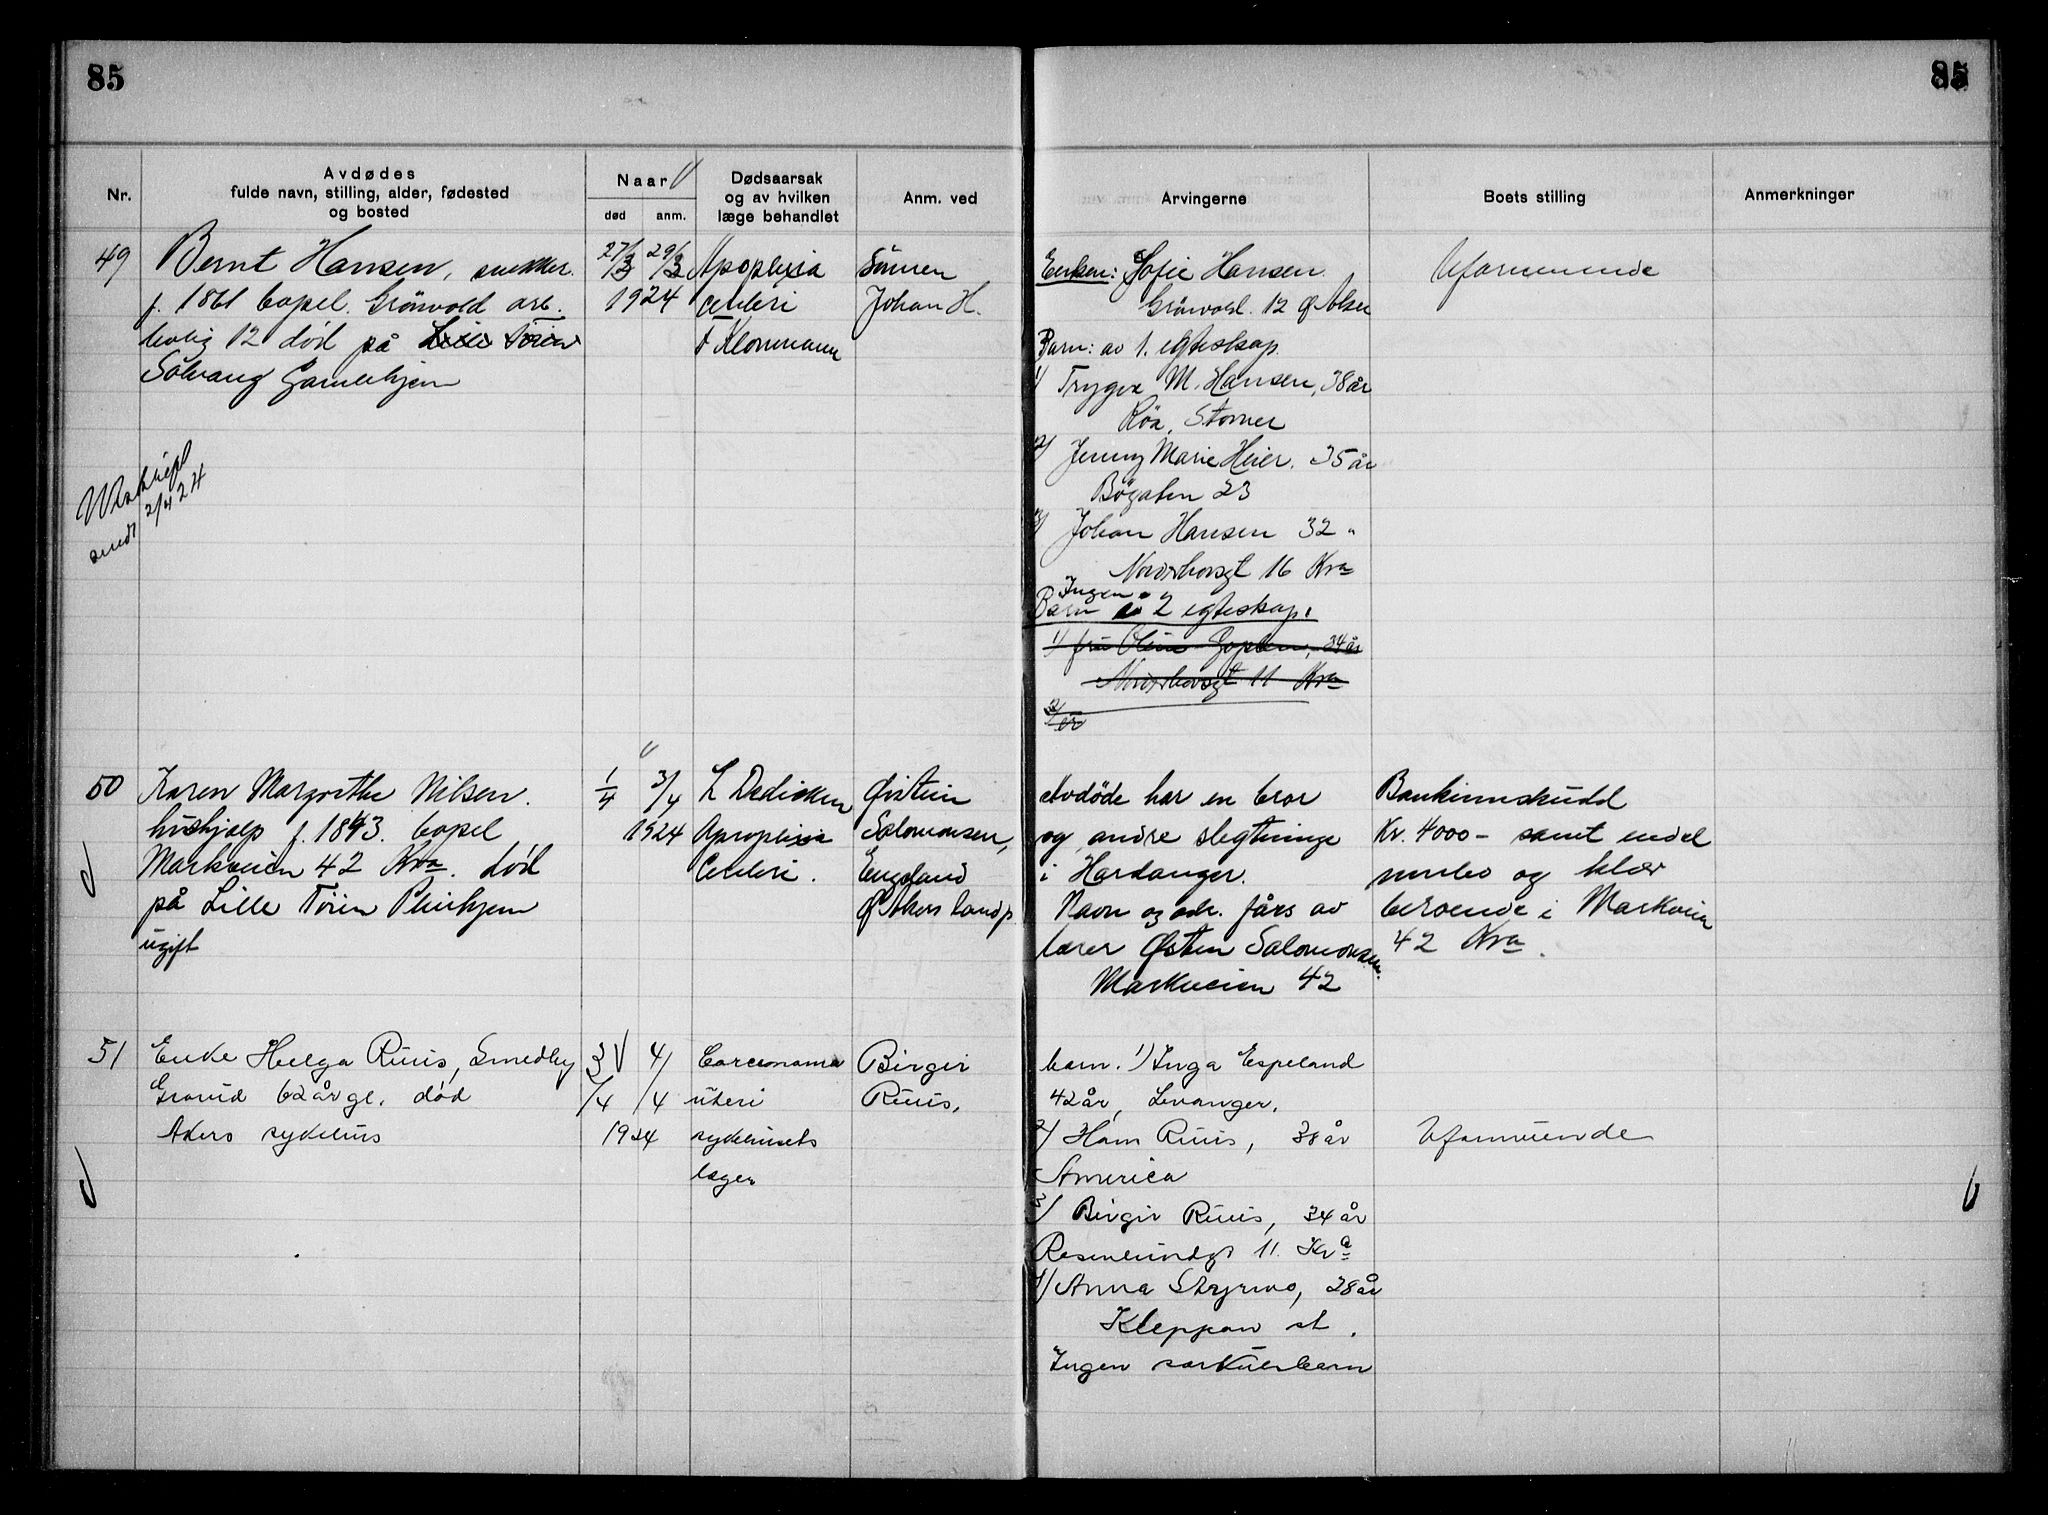 85
85
Nr.
Avdødes
fulde navn, stilling, alder, fødested
og bosted
Naar
død
anm.
Dødsaarsak
og av hvilken
læge behandlet
Anm. ved
Arvingerne
Boets stilling
Anmerkninger
49
Bernt Hansen, snekker.
f. 1861 bopel. Grönvold arb.
bolig 12 död på Lille Töien
Solvang Gamlehjem
27/3 29/3
1924
Apoplexia
celebri
F Klonmann
Sönnen
Johan H.
Enken: Sofie Hansen
Grönvold. 12 Ø Aker
Barn: av 1. egteskap.
1/ Trygve M. Hansen, 38 år
Röa, V Aker
2/ Jenny Marie Heier. 35 år
Bögaten 23
3/ Johan Hansen 32 "
Norderhovsgt 16 Kra
Ingen
Barn i 2 egteskap.
1/ fru Olina Goplen, 34 år
Norderhovsgt 11 Kra
2/ er
Uformuende
sendt 2/4 24
50
Karen Margrethe Nilsen.
hushjælp f. 1843. bopel
Markveien 42 Kra. död
på Lille Töien Pleihjem
ugift
1/4 3/4
1924
L Dedicken
Apoplexia
Celebri.
Østein
Salomonsen,
Engeland
Ø Akers landp.
Avdöde har en bror
og andre slegtninge
i Hardanger.
Navn og adr. fåes av
lærer Østen Salomonsen.
Markveien 42
Bankinnskudd
Kr. 4000 - samt endel
møbler og klær
beroende i Markveien
42 Kra.
51
Enke Helga Ruus, Smedby
Grorud 62 år gl. död
Akers sykehus
3/4 4/4
1924
Carcenoma
uteri
sykehusets
læger
Birger
Ruus,
barn. 1) Inga Espeland
42 år, Levanger.
2/ Hans Ruus, 38 år
America
3/ Birger Ruus, 34 år
Rosenlundgt 11. Kra
4/ Anna Styrmo, 28 år
Kleppan st.
Ingen særkulsbarn
Uformuende